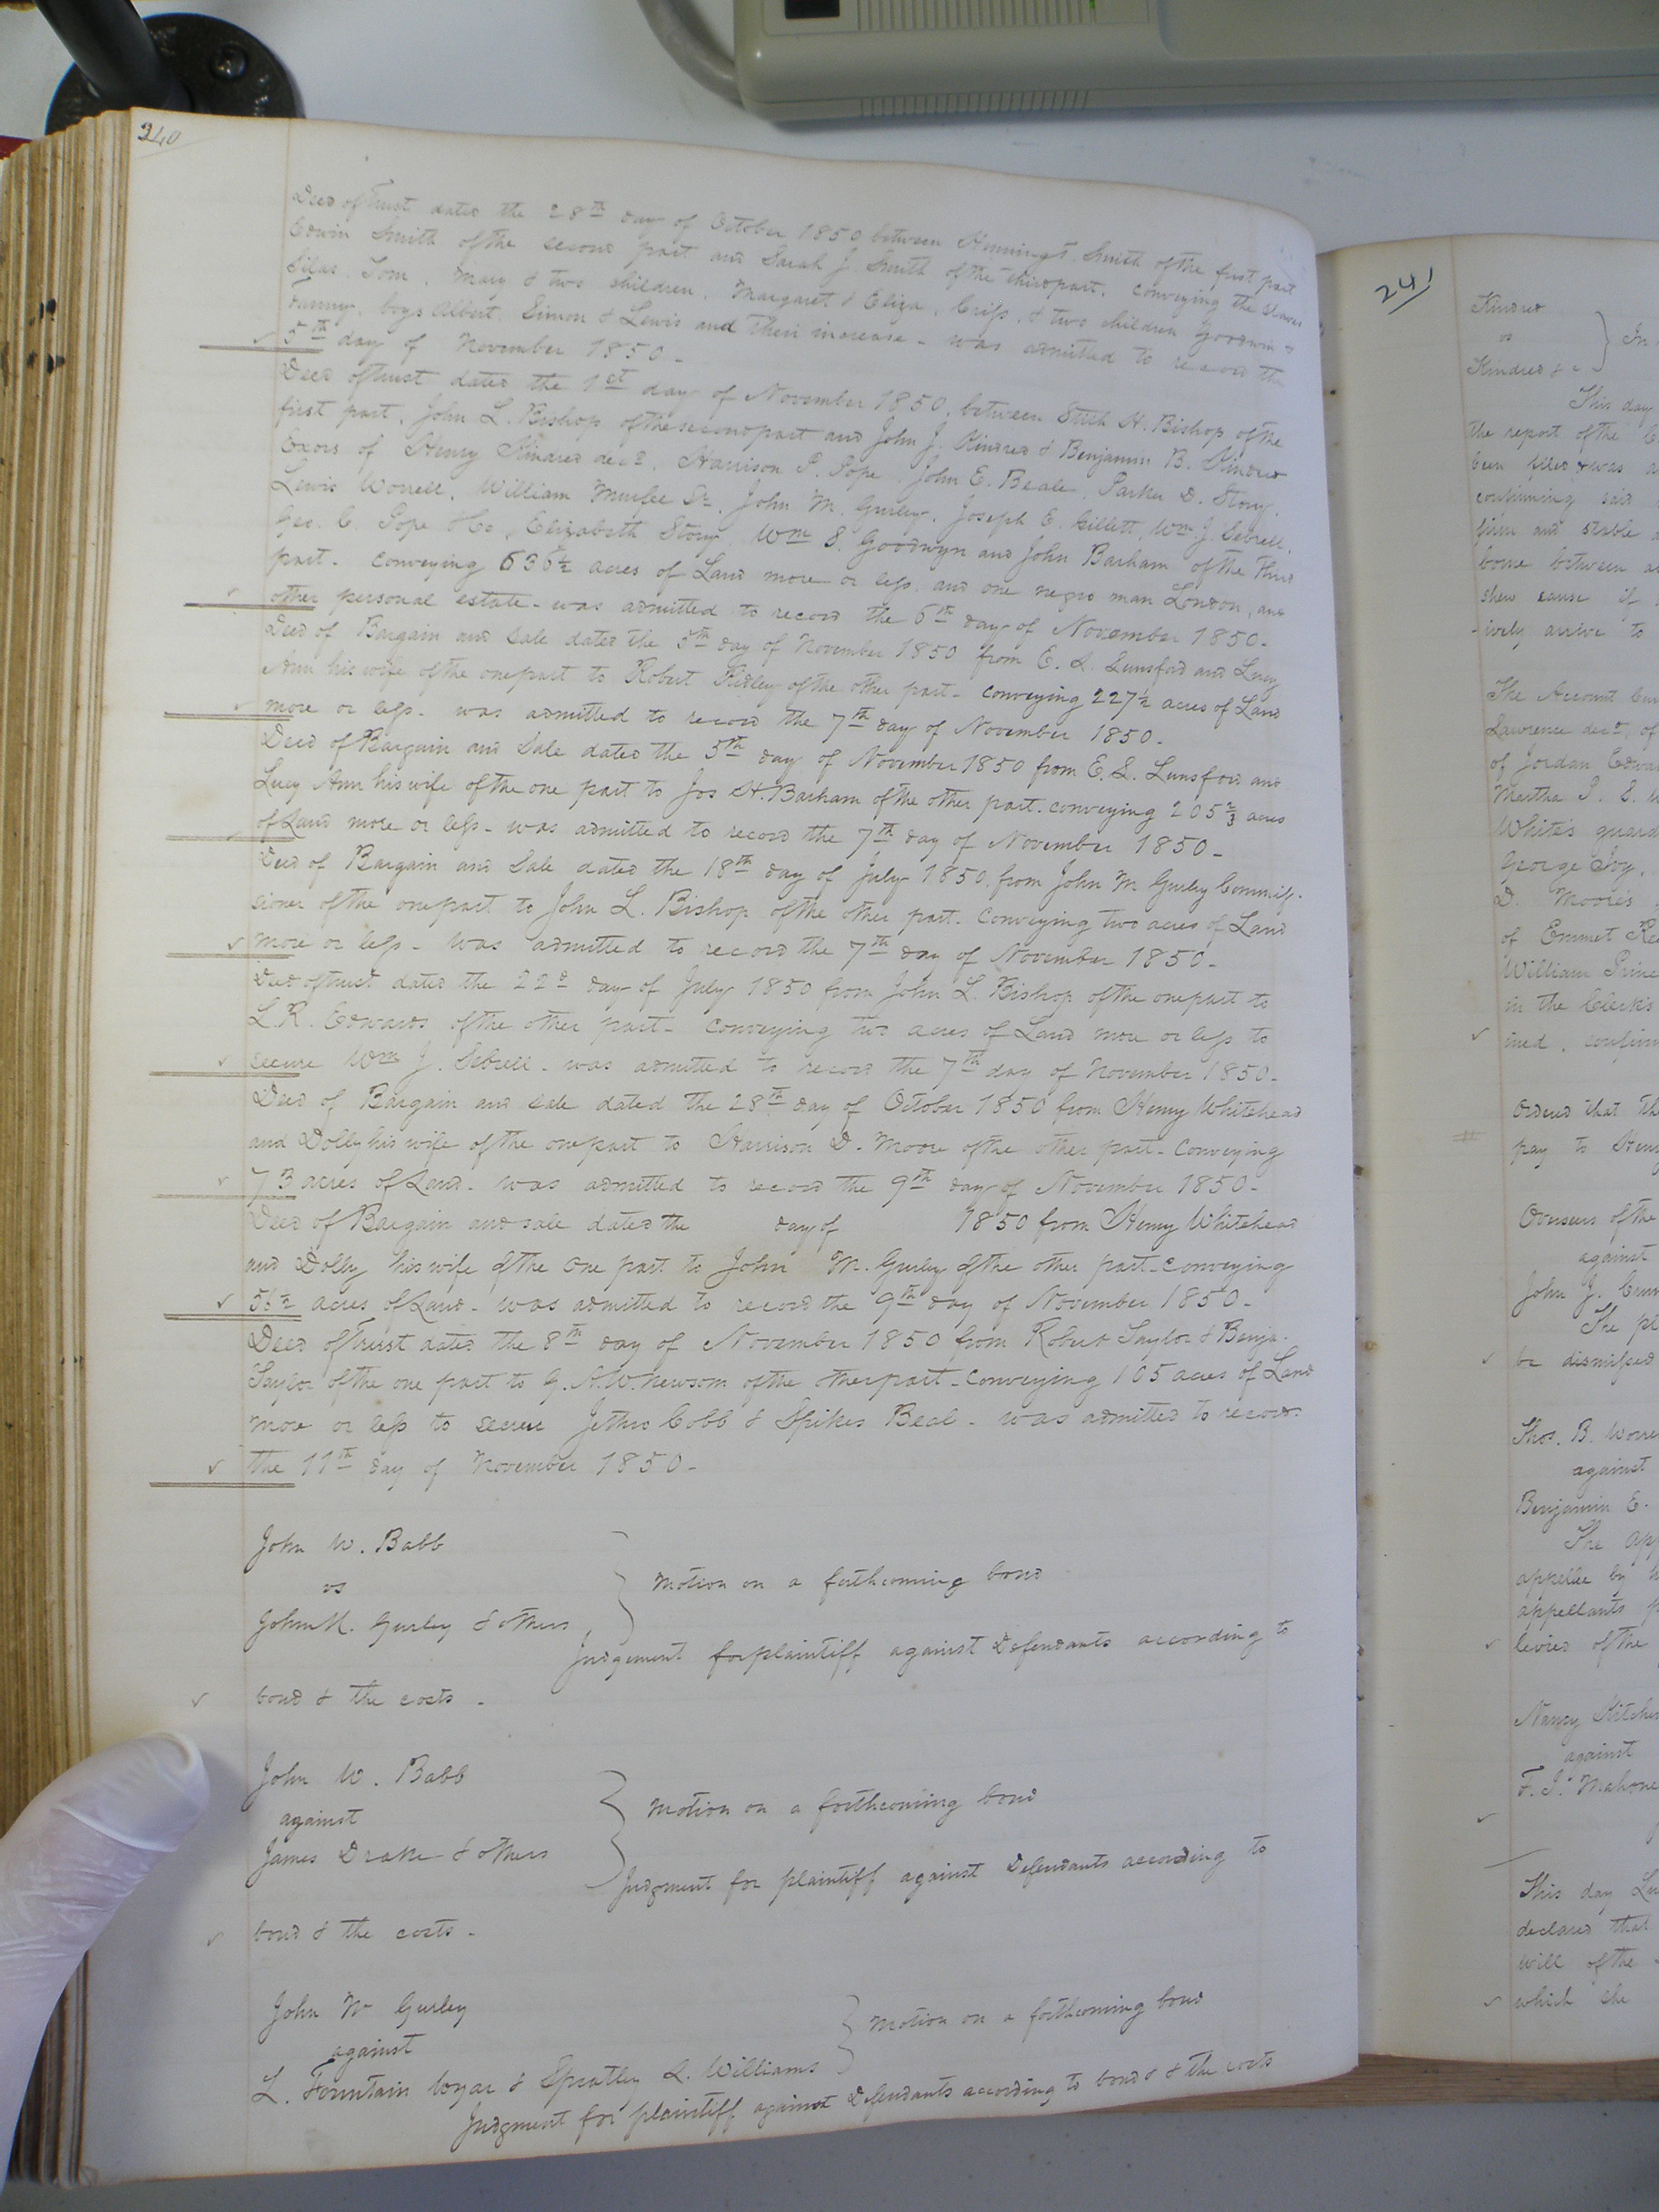 240
Deed of Trust dated the 28th day of October 1850 between Smith of the first part
Edwin Smith of the second part and Sarah J. Smith of the third part. conveying the slaves
Silas, Tom, Mary & two children, Margaret & Eliza, Criss, & two children Goodwin &
Fanny, boys Albert, Simon & Lewis and their increase - was admitted to record the
5th day of November 1850 -
Deed of trust dated the 1st day of November 1850, between Stith H. Bishop of the
first part, John L. Bishop of the second part and John J. Kindred & Benjamin B. Kindred
Exors of Henry Kindred decd, Harrison P. Pope, John E. Beale, Parker D. Story,
Lewis Worrell, William Murfee Sr, John M. Gurley, Joseph E. Gillett, Wm J. Sebrell,
Geo. C. Pope & Co, Elizabeth Story, Wm S. Goodwyn and John Barham of the Third
part - conveying 636½ acres of Land more or less, and one negro man London, and
other personal estate - was admitted to record the 6th day of November 1850 -
Deed of Bargain and Sale dated the 5th day of November 1850 from E. S. Lunsford and Lucy
Ann his wife of the one part to Robert Ridley of the other part - conveying 227½ acres of Land
more or less - was admitted to record the 7th day of November 1850 -
Deed of Bargain and Sale dated the 5th day of November 1850 from E. S. Lunsford and
Lucy Ann his wife of the one part to Jos H. Barham of the other part - conveying 205⅔ acres
of Land more or less - was admitted to record the 7th day of November 1850 -
Deed of Bargain and Sale dated the 18th day of July 1850, from John M Gurley Commis-
sioner of the one part to John L. Bishop of the other part - conveying two acres of Land
more or less - was admitted to record the 7th day of November 1850 -
Deed of trust dated the 22d day of July 1850 from John L. Bishop of the one part to
L. R. Edwards of the other part - conveying two acres of Land more or less to
secure Wm J. Sebrell - was admitted to record the 7th day of November 1850 -
Deed of Bargain and sale dated the 28th day of October 1850 from Henry Whitehead
and Dolly his wife of the one part to Harrison D. Moore of the other part - conveying
73 acres of Land - was admitted to record the 9th day of November 1850 -
Deed of Bargain and sale dated the day of 1850 from Henry Whitehead
and Dolly his wife of the one part to John M. Gurley of the other part - conveying
56½ acres of Land - was admitted to record the 9th day of November 1850 -
Deed of Trust dated the 8th day of November 1850 from Robert Taylor & Benja.
Taylor of the one part to G. A. W. Newsom of the other part - conveying 165 acres of Land
more or less to secure Jethro Cobb & Spikes Beal - was admitted to record
the 11th day of November 1850 -
John W. Babb
vs
John M. Gurley & others
Motion on a forthcoming bond
Judgement for plaintiff against Defendants according to
bond & the costs -
John W. Babb
against
James Drake & others
Motion on a forthcoming bond
Judgment for plaintiff against Defendants according to
bond & the costs -
John W Gurley
against
L. Fountain & Spratley L. Williams
Motion on a forthcoming bond
Judgment for plaintiff against Defendants according to bond & the costs
241
Kindred
vs
Kindred & c
In
This day
the report of the
been filed & was
confirming said
firm and stable
borne between
shew cause if
-ively arrive to
The Account Cur
Lawrence decd, of
of Jordan Edwa
Martha
White's guard
George Ivy,
D. Moore's
of Emmet
William Prince
in the Clerk's
ined, confirm
Ordered that th
pay to Henr
Overseers of the
against
John J.
The pl
be dismissed
Thos. B. Worre
against
Benjamin E.
The app
appellee by
appellants p
levied of the
Nancy Kitchen
against
F. J. Mahone
This day
declared that
will of the
which she